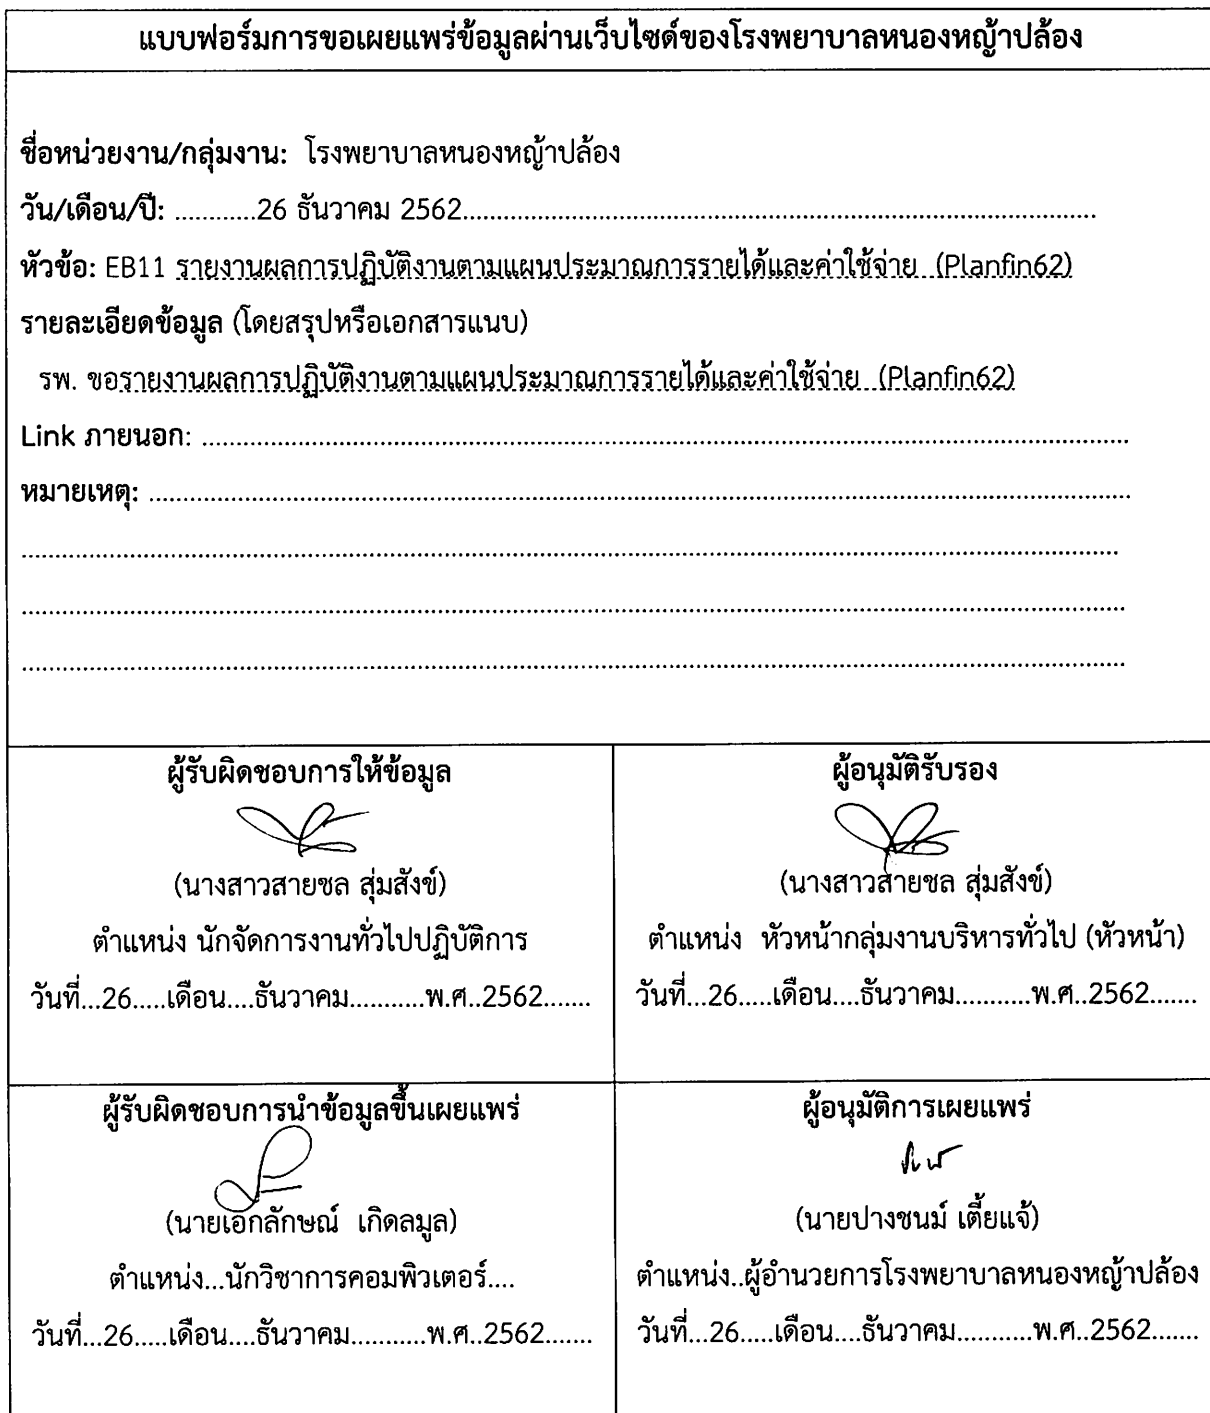 แบบฟอร์มการขอเผยแพร่ข้อมูลผ่านเว็บไซต์ของโรงพยาบาลหนองหญ้าปล้อง
ชื่อหน่วยงาน/กลุ่มงาน: โรงพยาบาลหนองหญ้าปล้อง
วัน/เดือน/ปี: ............26 ธันวาคม 2562................................................................................................
หัวข้อ: EB11 รายงานผลการปฏิบัติงานตามแผนประมาณการรายได้และค่าใช้จ่าย (Planfin62)
รายละเอียดข้อมูล (โดยสรุปหรือเอกสารแนบ)
รพ. ขอรายงานผลการปฏิบัติงานตามแผนประมาณการรายได้และค่าใช้จ่าย (Planfin62)
Link ภายนอก: ................................................................................................................................
หมายเหตุ: ................................................................................................................................
................................................................................................................................
................................................................................................................................
................................................................................................................................
ผู้รับผิดชอบการให้ข้อมูล
(นางสาวสายชล สุ่มสังข์)
ตำแหน่ง นักจัดการงานทั่วไปปฏิบัติการ
วันที่...26.....เดือน....ธันวาคม...........พ.ศ..2562.......
ผู้อนุมัติรับรอง
(นางสาวสายชล สุ่มสังข์)
ตำแหน่ง หัวหน้ากลุ่มงานบริหารทั่วไป (หัวหน้า)
วันที่...26.....เดือน....ธันวาคม...........พ.ศ..2562.......
ผู้รับผิดชอบการนำข้อมูลขึ้นเผยแพร่
(นายเอกลักษณ์ เกิดลมูล)
ตำแหน่ง...นักวิชาการคอมพิวเตอร์....
วันที่...26.....เดือน....ธันวาคม...........พ.ศ..2562.......
ผู้อนุมัติการเผยแพร่
(นายปางชนม์ เตี้ยแจ้)
ตำแหน่ง..ผู้อำนวยการโรงพยาบาลหนองหญ้าปล้อง
วันที่...26.....เดือน....ธันวาคม...........พ.ศ..2562.......